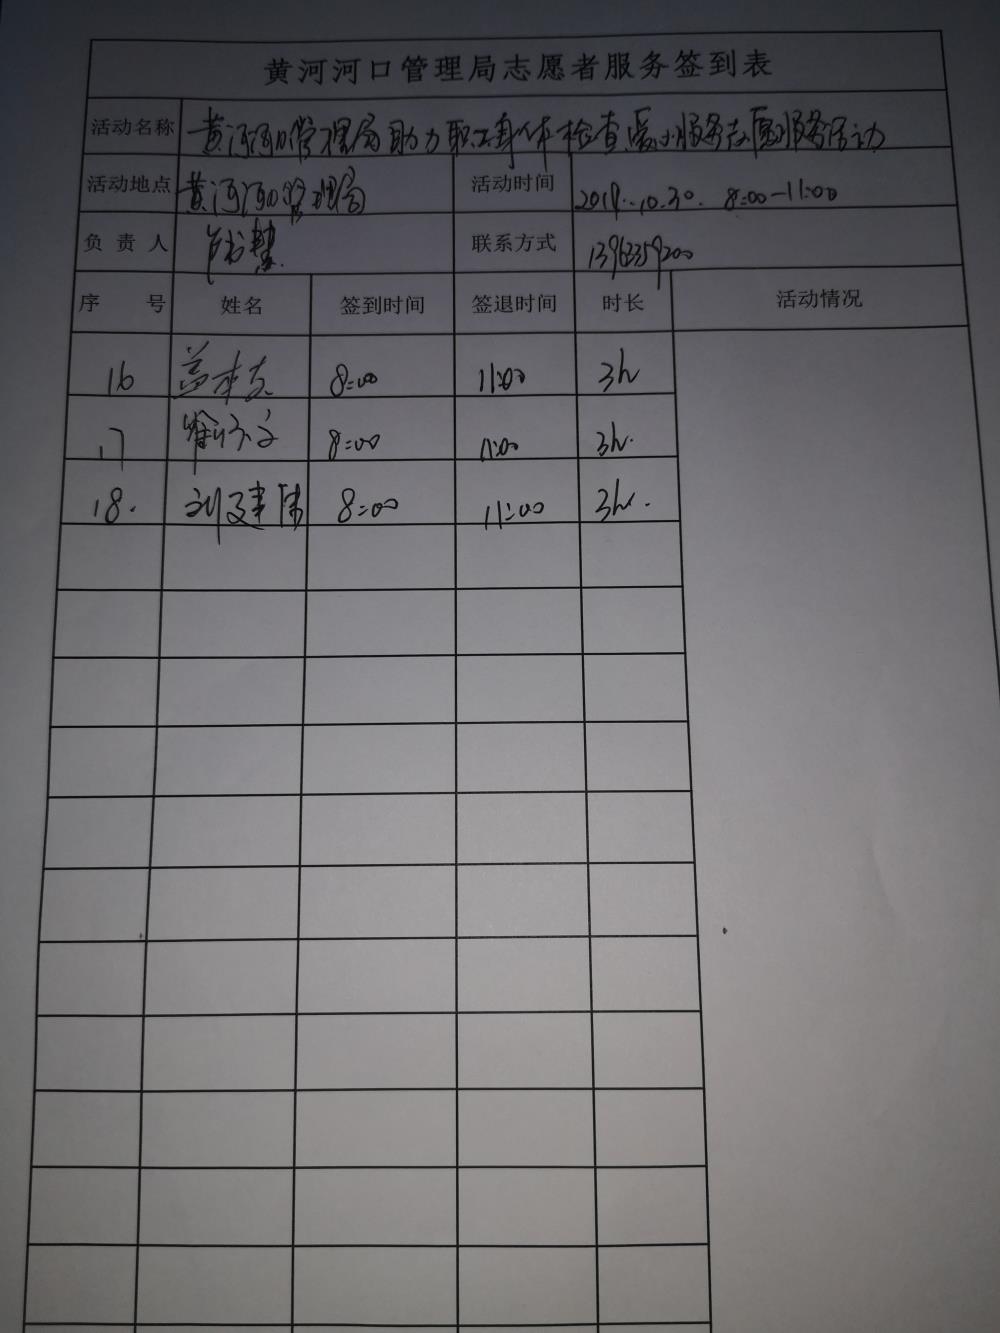 黄河河口管理局志愿者服务签到表
活动名称 黄河河口管理局助力职工身体检查暖心服务志愿服务活动
活动地点 黄河河口管理局 活动时间 2019.10.30. 8:00-11:00
负责人 联系方式 13963359200
序号 姓名 签到时间 签退时间 时长 活动情况
16 8:00 11:00 3h
17 8:00 11:00 3h.
18. 刘建伟 8:00 11:00 3h.